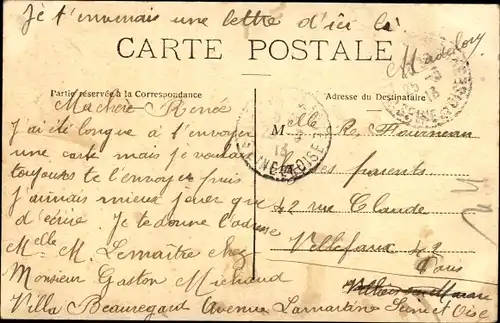 Je t'enverrais une lettre d'ici là
CARTE POSTALE
Partie réservée à la Correspondance
Adresse du Destinataire
Ma chère Renée
J'ai été longue à t'envoyer
une carte mais je voulais
toujours te l'envoyer puis
j'aimais mieux jouer que
d'écrire. Je te donne l'adresse
Melle M. Lemaitre chez
Monsieur Gaston Michaud
Villa Beauregard Avenue Lamartine Seine et Oise
Melle R. Fourneau
chez ses parents
42 rue Claude
Vellefaux 42
Paris
SEINE-ET-OISE